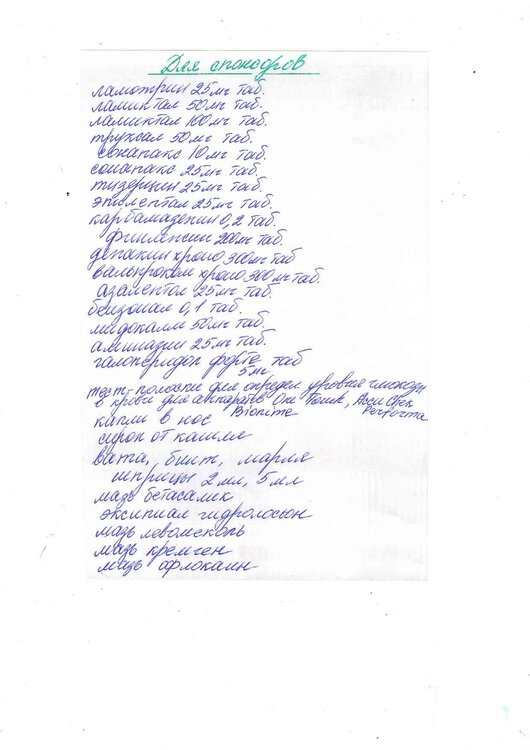 Для спонсоров
ламотрин 25мг таб.
ламиктал 50мг таб.
ламиктал 100мг таб.
труксал 50мг таб.
сонапакс 10мг таб.
сонапакс 25мг таб.
тизерцин 25мг таб.
эпилептал 25мг таб.
карбамазепин 0,2 таб.
финлепсин 200мг таб.
депакин хроно 300мг таб
вальпроком хроно 300мг таб.
азалептол 25мг таб.
бензонал 0,1 таб.
мидокалм 50мг таб.
аминазин 25мг таб.
галоперидол форте таб
5мг
тест-полоски для определ уровня глюкозы
в крови для аппаратов One Touch, Accu Chek
Bionime Performa
капли в нос
сироп от кашля
вата, бинт, марля
шприцы 2мл, 5мл
мазь бетасалик
эксипиал гидролосьон
мазь левомеколь
мазь кремген
мазь офлокаин